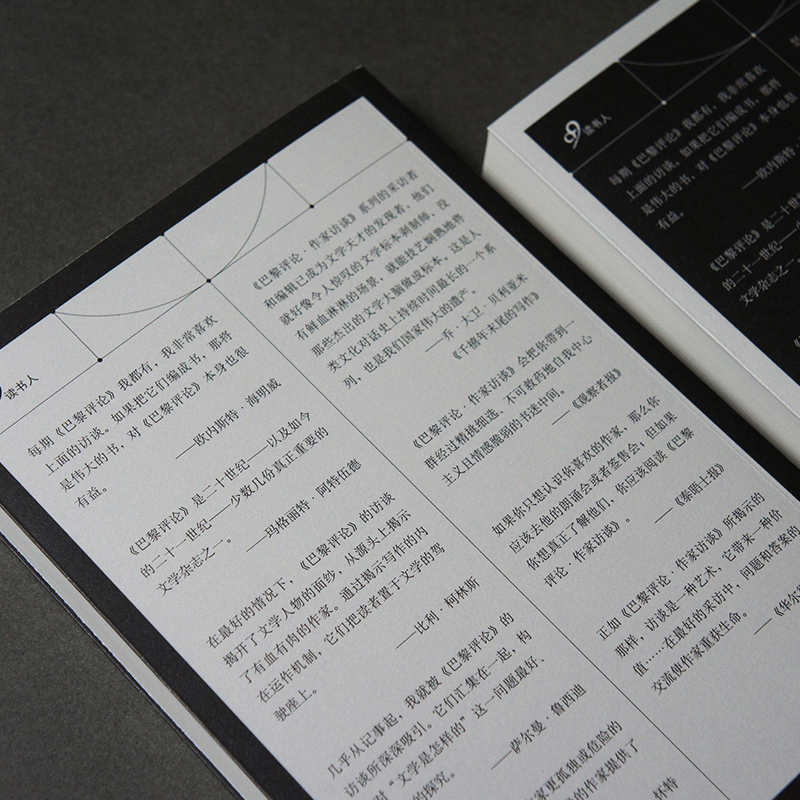 读书人
每期《巴黎评论》我都有，我非常喜欢
上面的访谈。如果把它们编成书，那将
是伟大的书，对《巴黎评论》本身也很
有益。
——欧内斯特·海明威
《巴黎评论》是二十世纪——以及如今
的二十一世纪——少数几份真正重要的
文学杂志之一。
——玛格丽特·阿特伍德
在最好的情况下，《巴黎评论》的访谈
揭开了文学人物的面纱，从源头上揭示
了有血有肉的作家。通过揭示写作的内
在运作机制，它们把读者置于文学的驾
驶座上。
——比利·柯林斯
几乎从记事起，我就被《巴黎评论》的
访谈所深深吸引。它们汇集在一起，构
对“文学是怎样的”这一问题最好、
的探究。
——萨尔曼·鲁西迪
家更孤独或危险的
的作家提供了
怀特
《巴黎评论·作家访谈》系列的采访者
和编辑已成为文学天才的发现者，他们
就好像令人惊叹的文学标本剥制师，没
有鲜血淋淋的场景，就能技艺娴熟地将
那些杰出的文学大脑做成标本，这是人
类文化对话史上持续时间最长的一个系
列，也是我们国家伟大的遗产。
——乔·大卫·贝利亚米
《千禧年末尾的写作》
《巴黎评论·作家访谈》会把你带到一
群经过精挑细选、不可救药地自我中心
主义且情感脆弱的书迷中间。
——《观察者报》
如果你只想认识你喜欢的作家，那么你
应该去他的朗诵会或者签售会，但如果
你想真正了解他们，你应该阅读《巴黎
评论·作家访谈》。
——《泰晤士报》
正如《巴黎评论·作家访谈》所揭示的
那样，访谈是一种艺术，它带来一种价
值……在最好的采访中，问题和答案的
交流使作家重获生命。
——《华尔
99
读书人
每期《巴黎评论》我都有，我非常喜欢
上面的访谈。如果把它们编成书，那将
是伟大的书，对《巴黎评论》本身也很
有益。
——欧内斯特·
《巴黎评论》是二十世
的二十一世纪——
文学杂志之一。